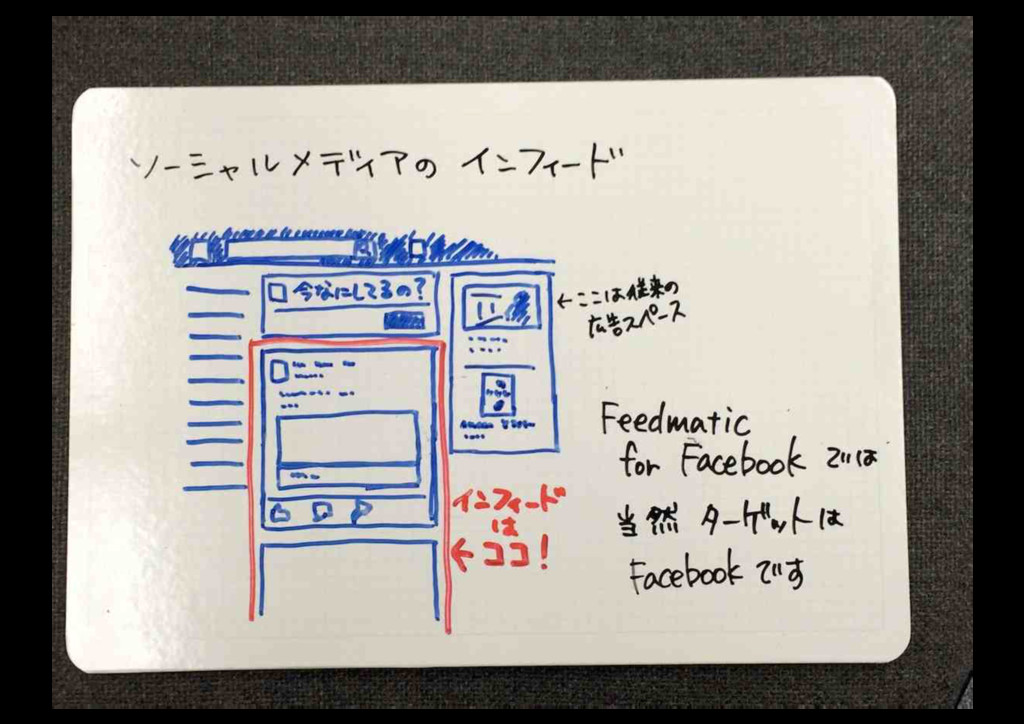 ソーシャルメディアの インフィード
今なにしてるの？
←ここは従来の
広告スペース
インフィード
は
←ココ！
Feedmatic
for Facebook では
当然 ターゲットは
Facebook です